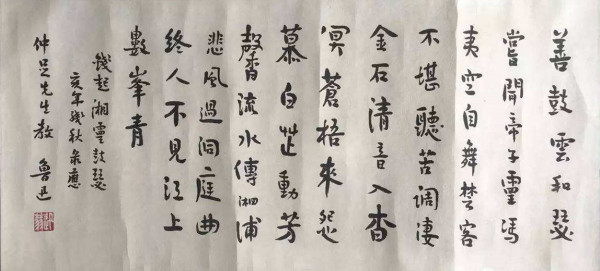 善鼓雲和瑟
嘗聞帝子靈馮
夷空自舞楚客
不堪聽苦調淒
金石清音入杳
冥蒼梧來怨
慕白芷動芳
馨流水傳湘浦
悲風過洞庭曲
終人不見江上
數峯青
錢起湘靈鼓瑟
亥年殘秋錄應
仲足先生教 魯迅